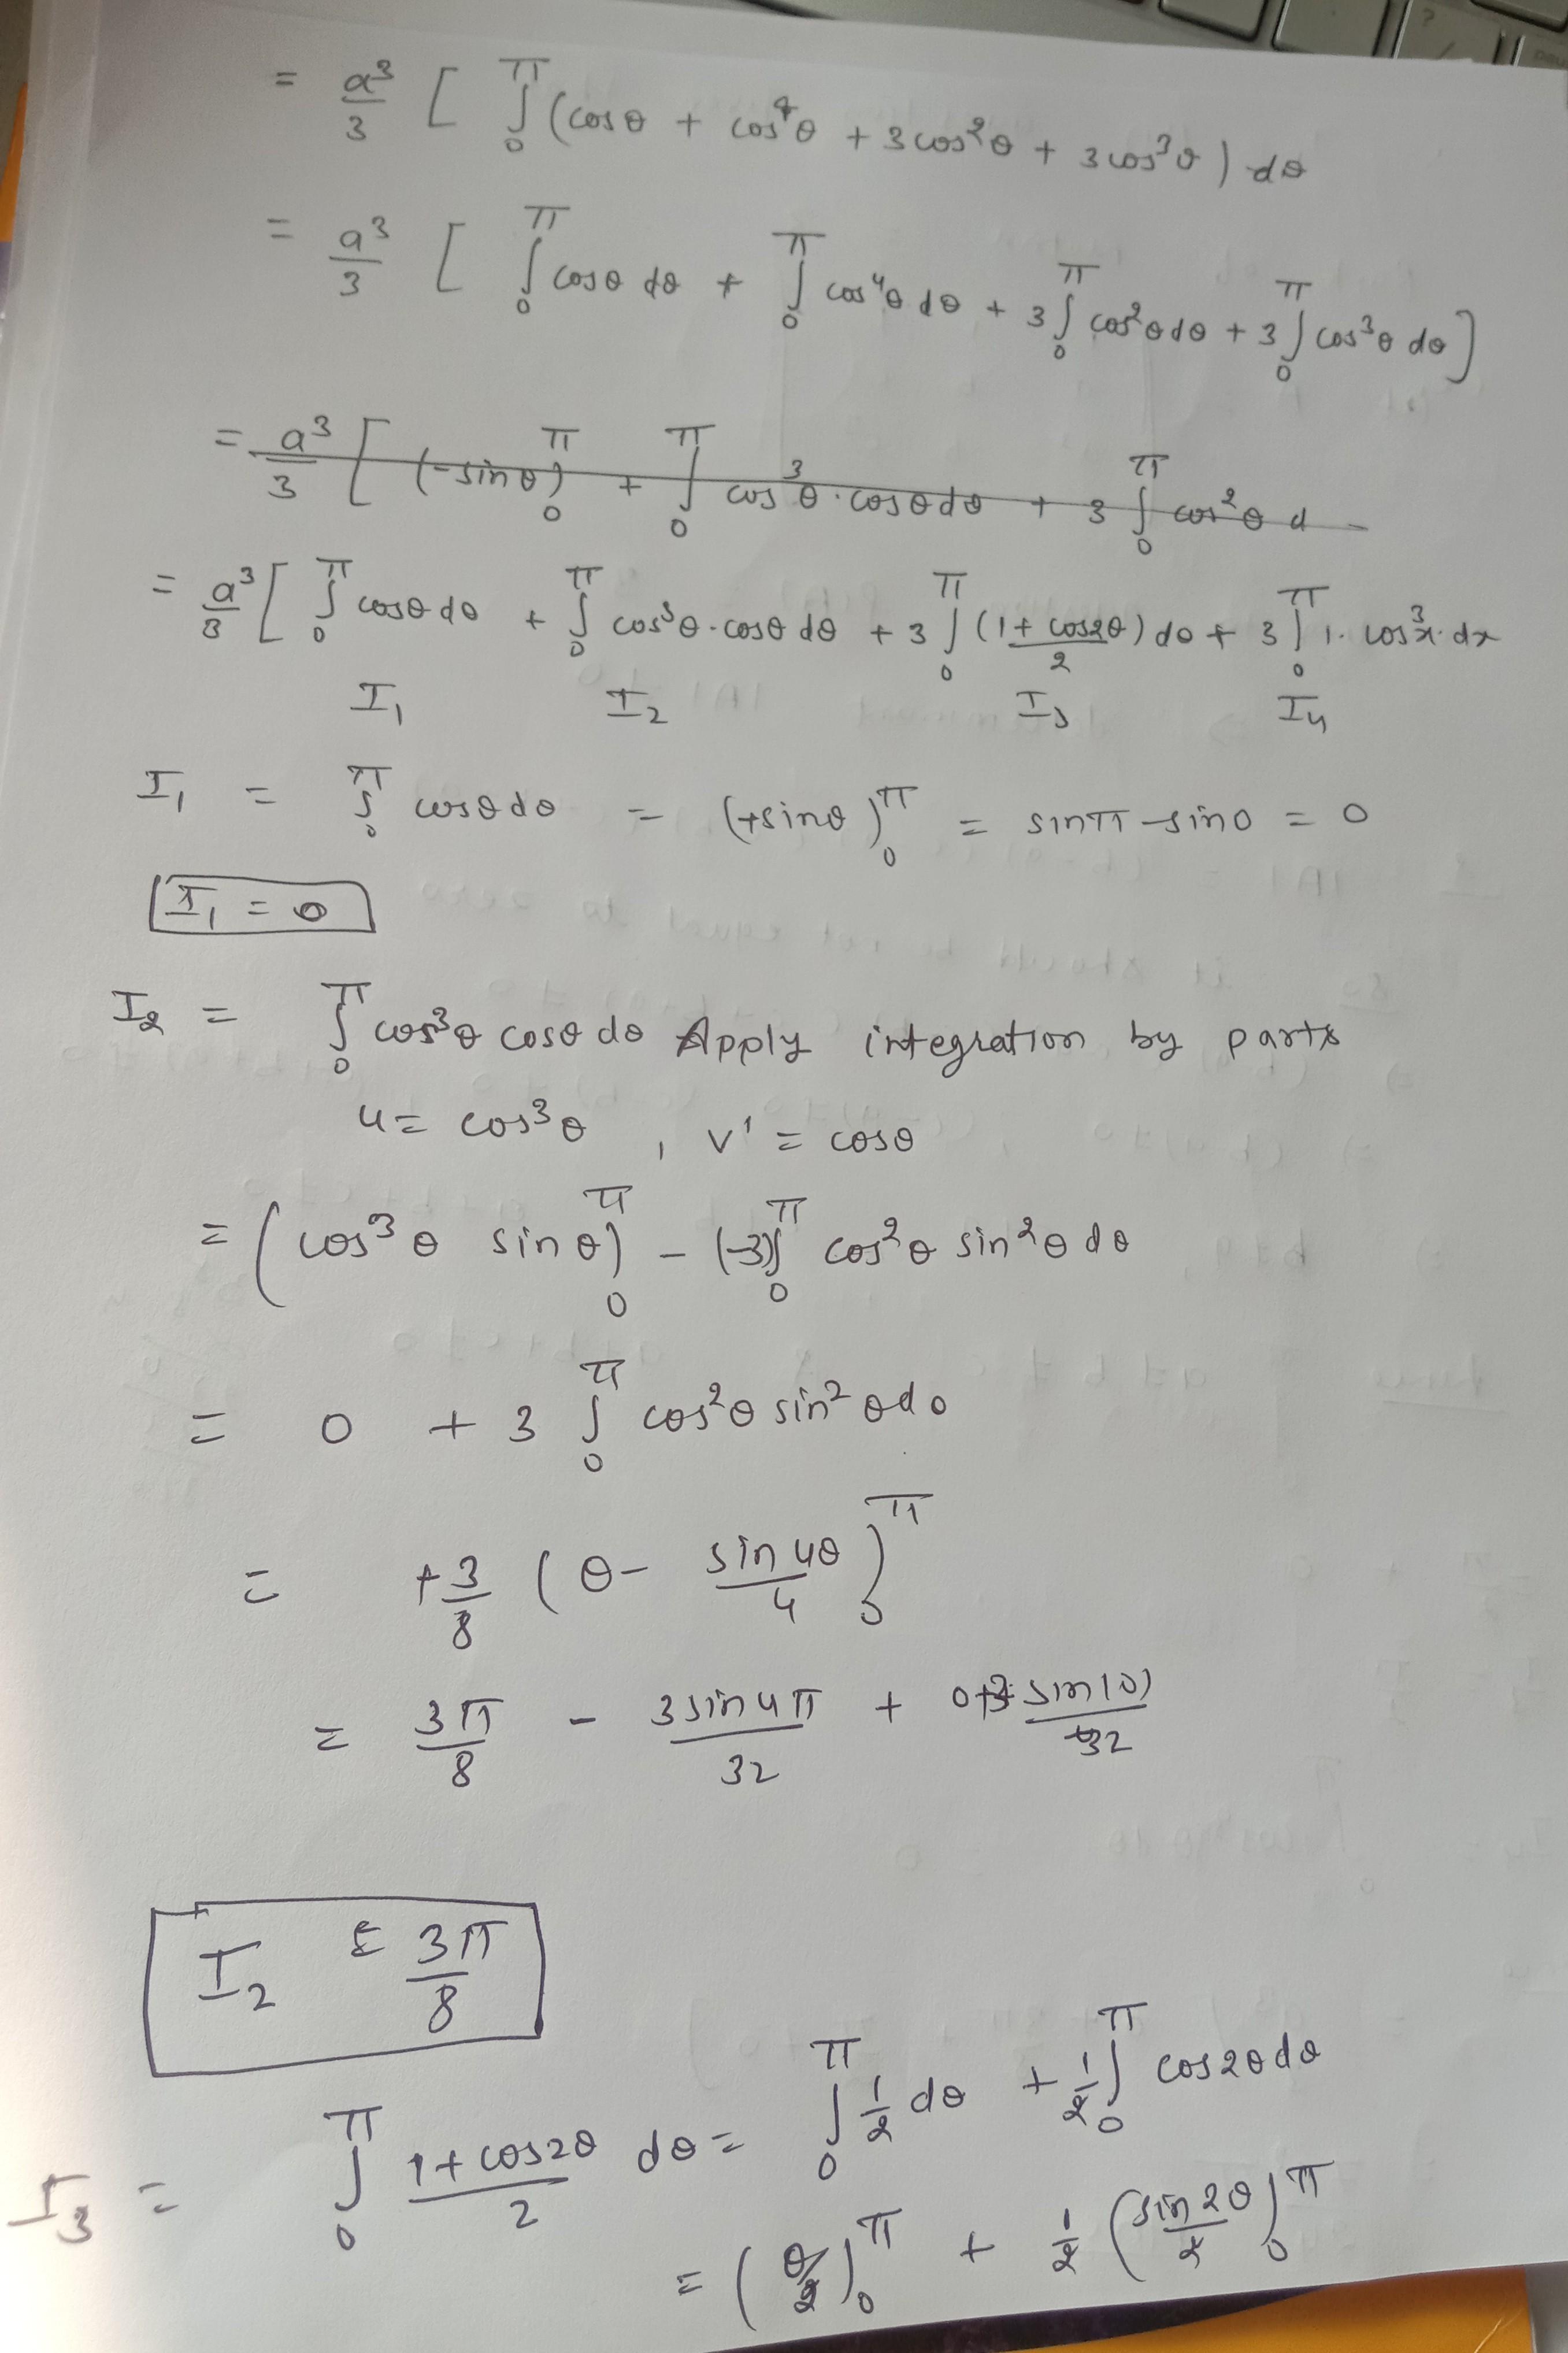 = a³/3 [ ∫₀^π (cosθ + cos⁴θ + 3cos²θ + 3cos³θ) dθ
= a³/3 [ ∫₀^π cosθ dθ + ∫₀^π cos⁴θ dθ + 3∫₀^π cos²θ dθ + 3∫₀^π cos³θ dθ ]
= a³/3 [ (-sinθ)₀^π + ∫₀^π cos³θ·cosθ dθ + 3∫₀^π cos²θ d
= a³/3 [ ∫₀^π cosθ dθ + ∫₀^π cos³θ·cosθ dθ + 3∫₀^π (1+cos2θ)/2 dθ + 3∫₀^π 1·cos³x·dx
I₁ I₂ I₃ I₄
I₁ = ∫₀^π cosθ dθ = (+sinθ)₀^π = sinπ - sin0 = 0
I₁ = 0
I₂ = ∫₀^π cos³θ cosθ dθ Apply integration by parts
u = cos³θ , v' = cosθ
= (cos³θ sinθ)₀^π - (-3)∫₀^π cos²θ sin²θ dθ
= 0 + 3 ∫₀^π cos²θ sin²θ dθ
= +3/8 (θ - sin4θ/4)₀^π
= 3π/8 - 3sin4π/32 + 0+3 sin(0)/32
I₂ = 3π/8
I₃ = ∫₀^π (1+cos2θ)/2 dθ = ∫₀^π 1/2 dθ + 1/2 ∫₀^π cos2θ dθ
= (θ/2)₀^π + 1/2 (sin2θ/2)₀^π